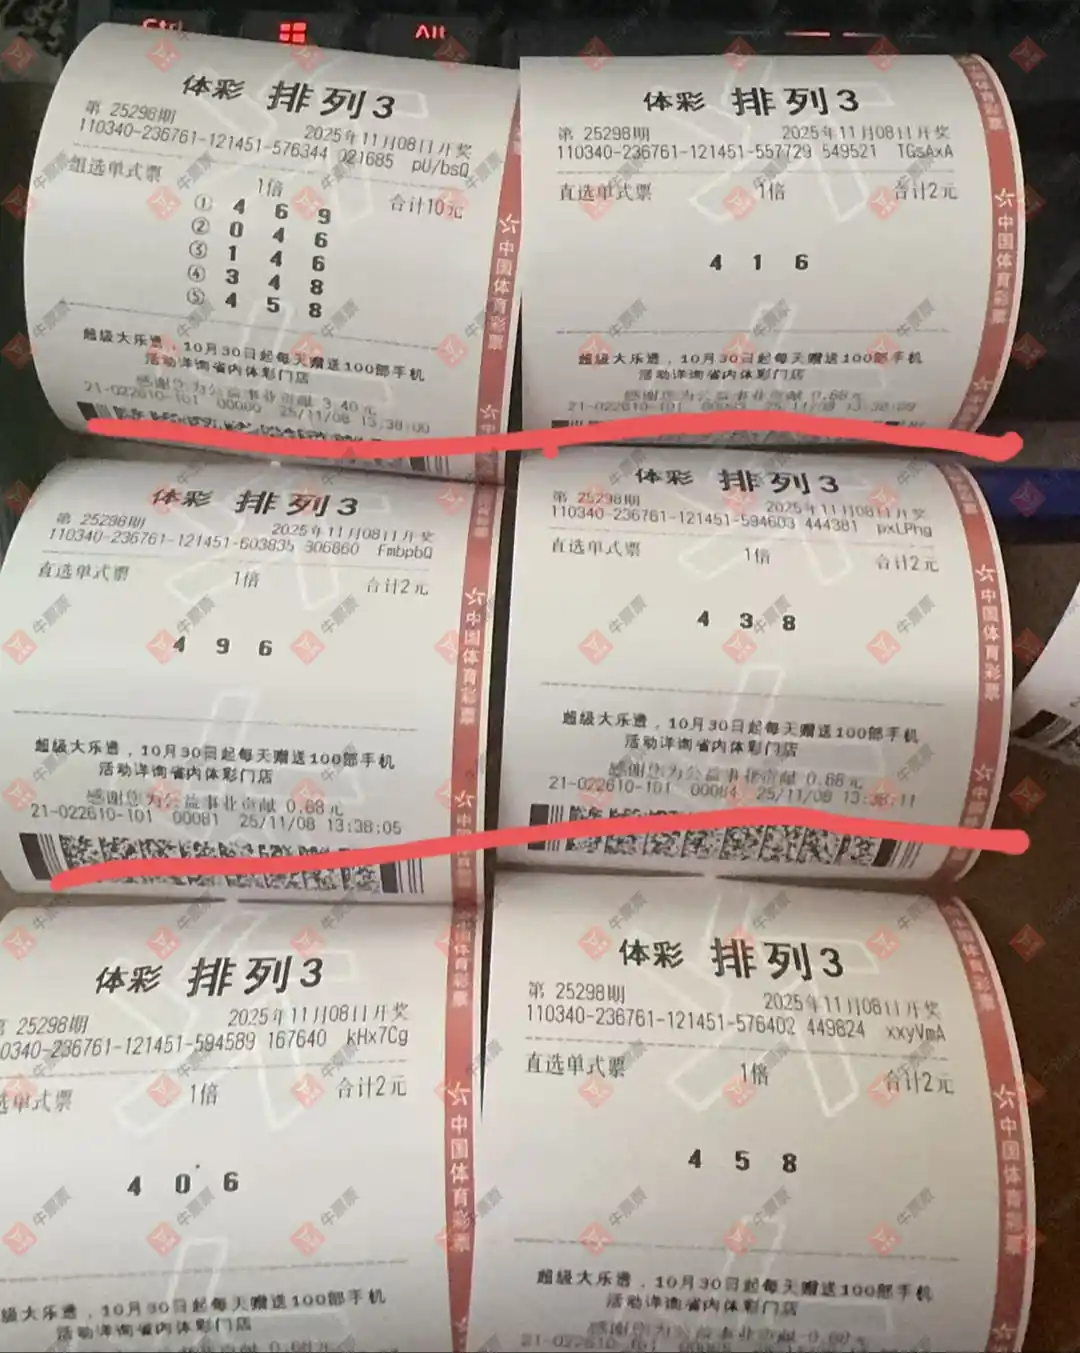 Ctrl
Alt
体彩 排列3
第 25298期
2025年11月08日开奖
110340-236761-121451-576344 021685 pU/bsQ
组选单式票
1倍
合计10元
① 4 6 9
② 0 4 6
③ 1 4 6
④ 3 4 8
⑤ 4 5 8
超级大乐透，10月30日起每天赠送100部手机
活动详询省内体彩门店
感谢您为公益事业贡献 3.40元
21-022610-101 00080 25/11/08 13:38:00
中国体育彩票
体彩 排列3
第 25298期
2025年11月08日开奖
110340-236761-121451-557729 549521 TGsAxA
直选单式票 1倍 合计2元
4 1 6
超级大乐透，10月30日起每天赠送100部手机
活动详询省内体彩门店
感谢您为公益事业贡献 0.68元
21-022610-101 25/11/08 13:38:09
中国体育彩票
体彩 排列3
第 25298期
2025年11月08日开奖
110340-236761-121451-603835 306860 FmbpbQ
直选单式票 1倍 合计2元
4 9 6
超级大乐透，10月30日起每天赠送100部手机
活动详询省内体彩门店
感谢您为公益事业贡献 0.68元
21-022610-101 00081 25/11/08 13:38:05
中国体育彩票
体彩 排列3
第 25298期
2025年11月08日开奖
110340-236761-121451-594603 444381 pxLPhg
直选单式票 1倍 合计2元
4 3 8
超级大乐透，10月30日起每天赠送100部手机
活动详询省内体彩门店
感谢您为公益事业贡献 0.68元
21-022610-101 00084 25/11/08 13:38:11
中国体育彩票
体彩 排列3
25298期
2025年11月08日开奖
0340-236761-121451-594589 167640 kHx7Cg
选单式票 1倍 合计2元
4 0 6
级大乐透，10月30日起每天赠送100部手机
活动详询省内体彩门店
中国体育彩票
体彩 排列3
第 25298期
2025年11月08日开奖
110340-236761-121451-576402 449824 xxyVmA
直选单式票 1倍 合计2元
4 5 8
超级大乐透，10月30日起每天赠送100部手机
活动详询省内体彩门店
感谢您为公益事业贡献 0.68元
中国体育彩票
牛票票